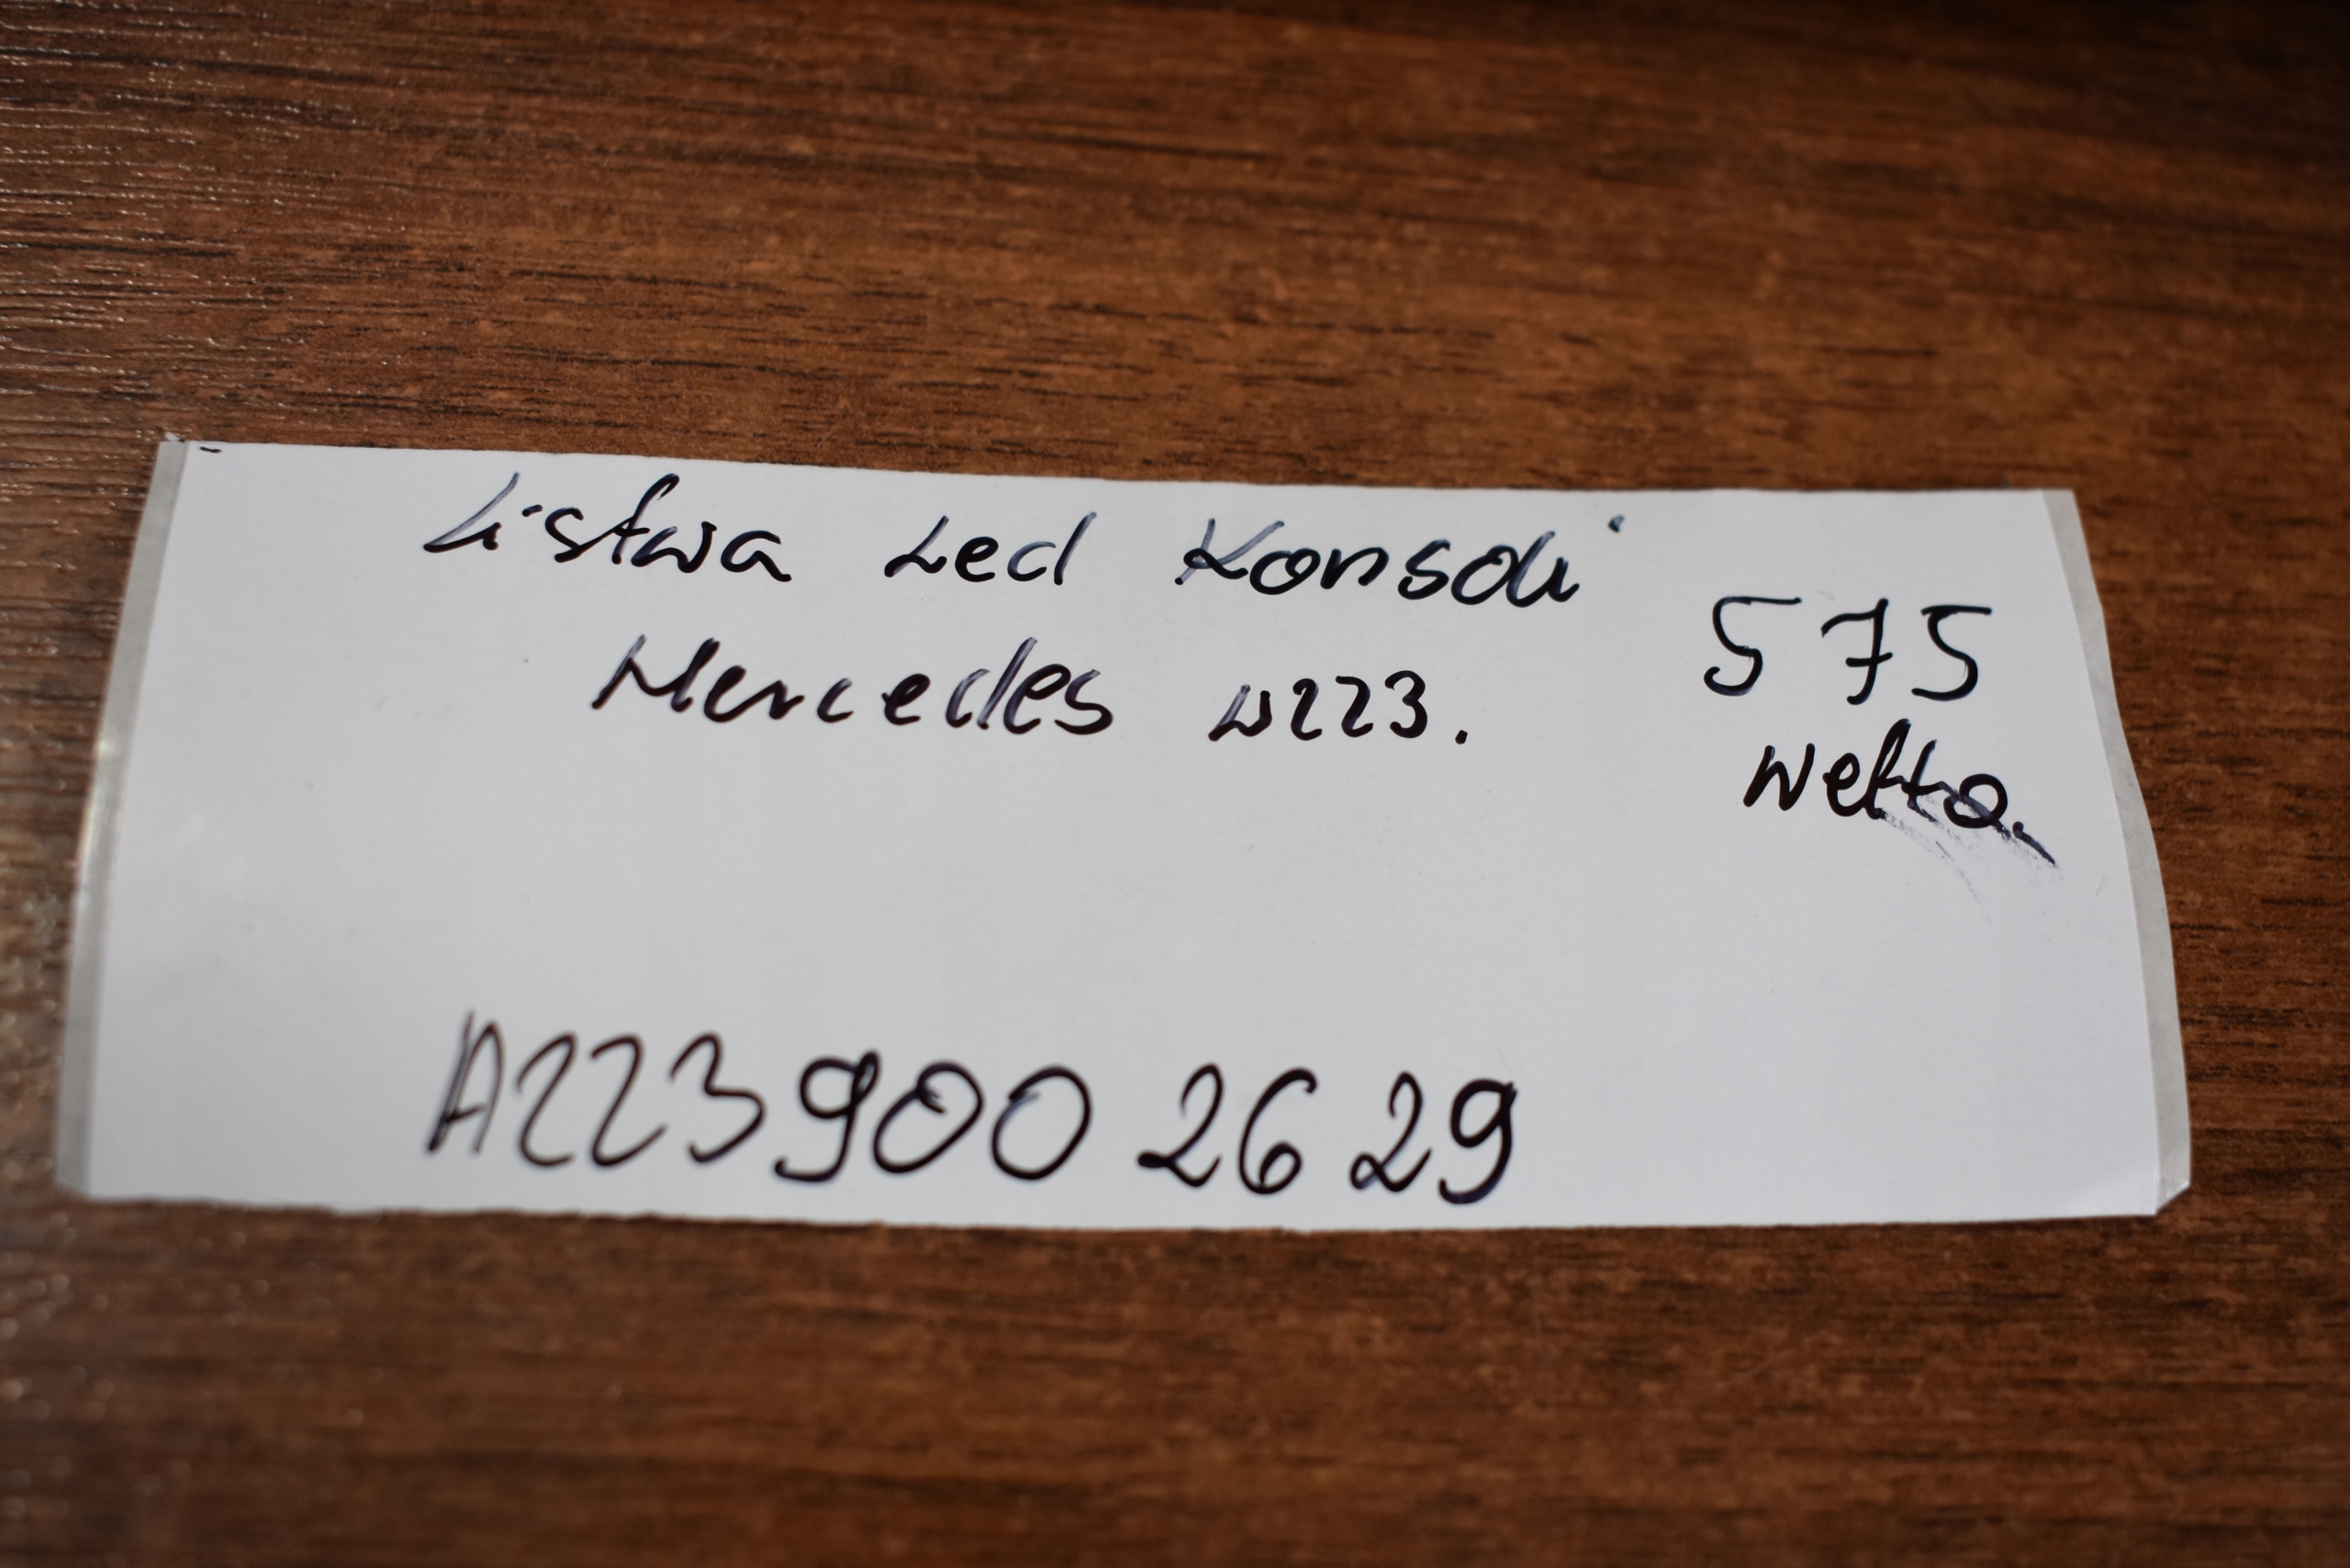 Listwa Led Konsoli
Mercedes w223.
575
Netto.
A223 900 26 29